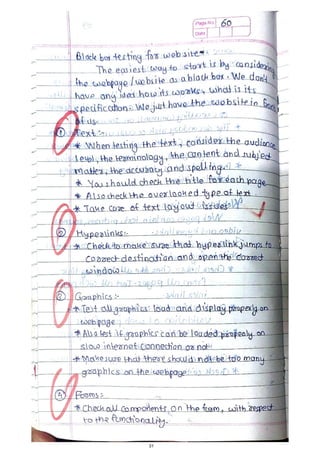 Page No. 60
Date
Black box testing for website
The easiest way to start is by considering
the webpage / website as a black box. We don't
have any idea how its works, what is its
specification. We just have the website in front
of us.
① Text:-
* When testing the text, consider the audience
level, the terminology, the content and subject
matter, the accuracy and spelling.
* You should check the title for each page
* Also check the overlooked type of text
* Take care of text layout issues
② Hyperlinks:-
* Check to make sure that hyperlink jumps to
correct destination and open the correct
window
③ Graphics:-
* Test all graphics load and display properly on
webpage
* Also test if graphics can be loaded properly on
slow internet connection or not
* Make sure that there should not be too many
graphics on the webpage
④ Forms:-
* Check all components, on the form, with respect
to the functionality.
31